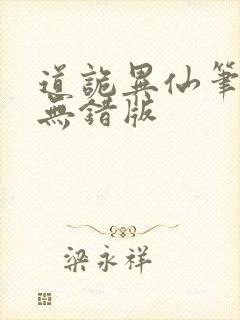 道詭異仙筆
無錯版
梁永祥